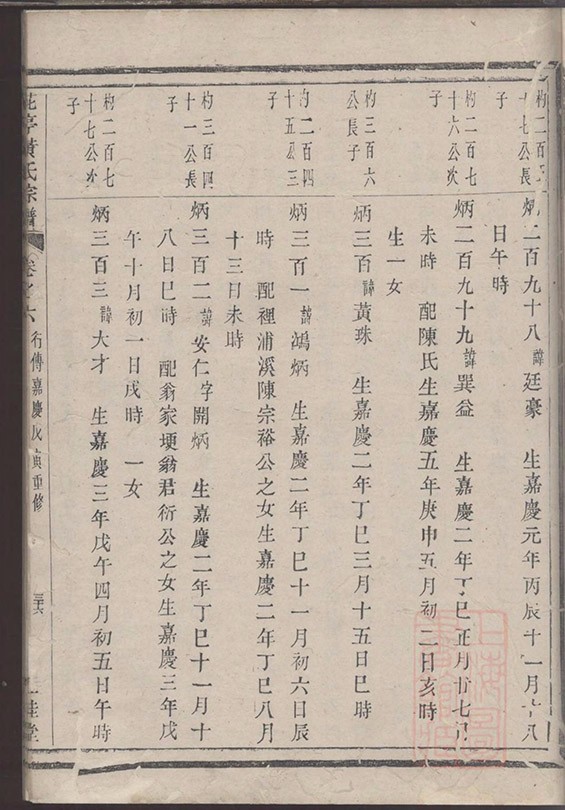 十七公長
子
炳二百九十八諱廷豪 生嘉慶元年丙辰十一月十八
日午時
杓二百七
十六公次
子
炳二百九十九諱巽益 生嘉慶二年丁巳正月廿七
未時 配陳氏生嘉慶五年庚申五月初二日亥時
生一女
杓三百六
公長子
炳三百諱黃珠 生嘉慶二年丁巳三月十五日巳時
杓二百四
十五公三
子
炳三百一諱鴻炳 生嘉慶二年丁巳十一月初六日辰
時 配裡浦溪陳宗裕公之女生嘉慶二年丁巳八月
十三日未時
杓三百四
十一公長
子
炳三百二諱安仁字開炳 生嘉慶二年丁巳十一月十
八日巳時 配翁家埂翁君衍公之女生嘉慶三年戊
午十月初一日戌時 一女
杓二百七
十七公次
子
炳三百三諱大才 生嘉慶三年戊午四月初五日午時
亭黃氏宗譜 卷之六 行傳嘉慶戊寅重修 三十六 桂堂
上海圖書館藏